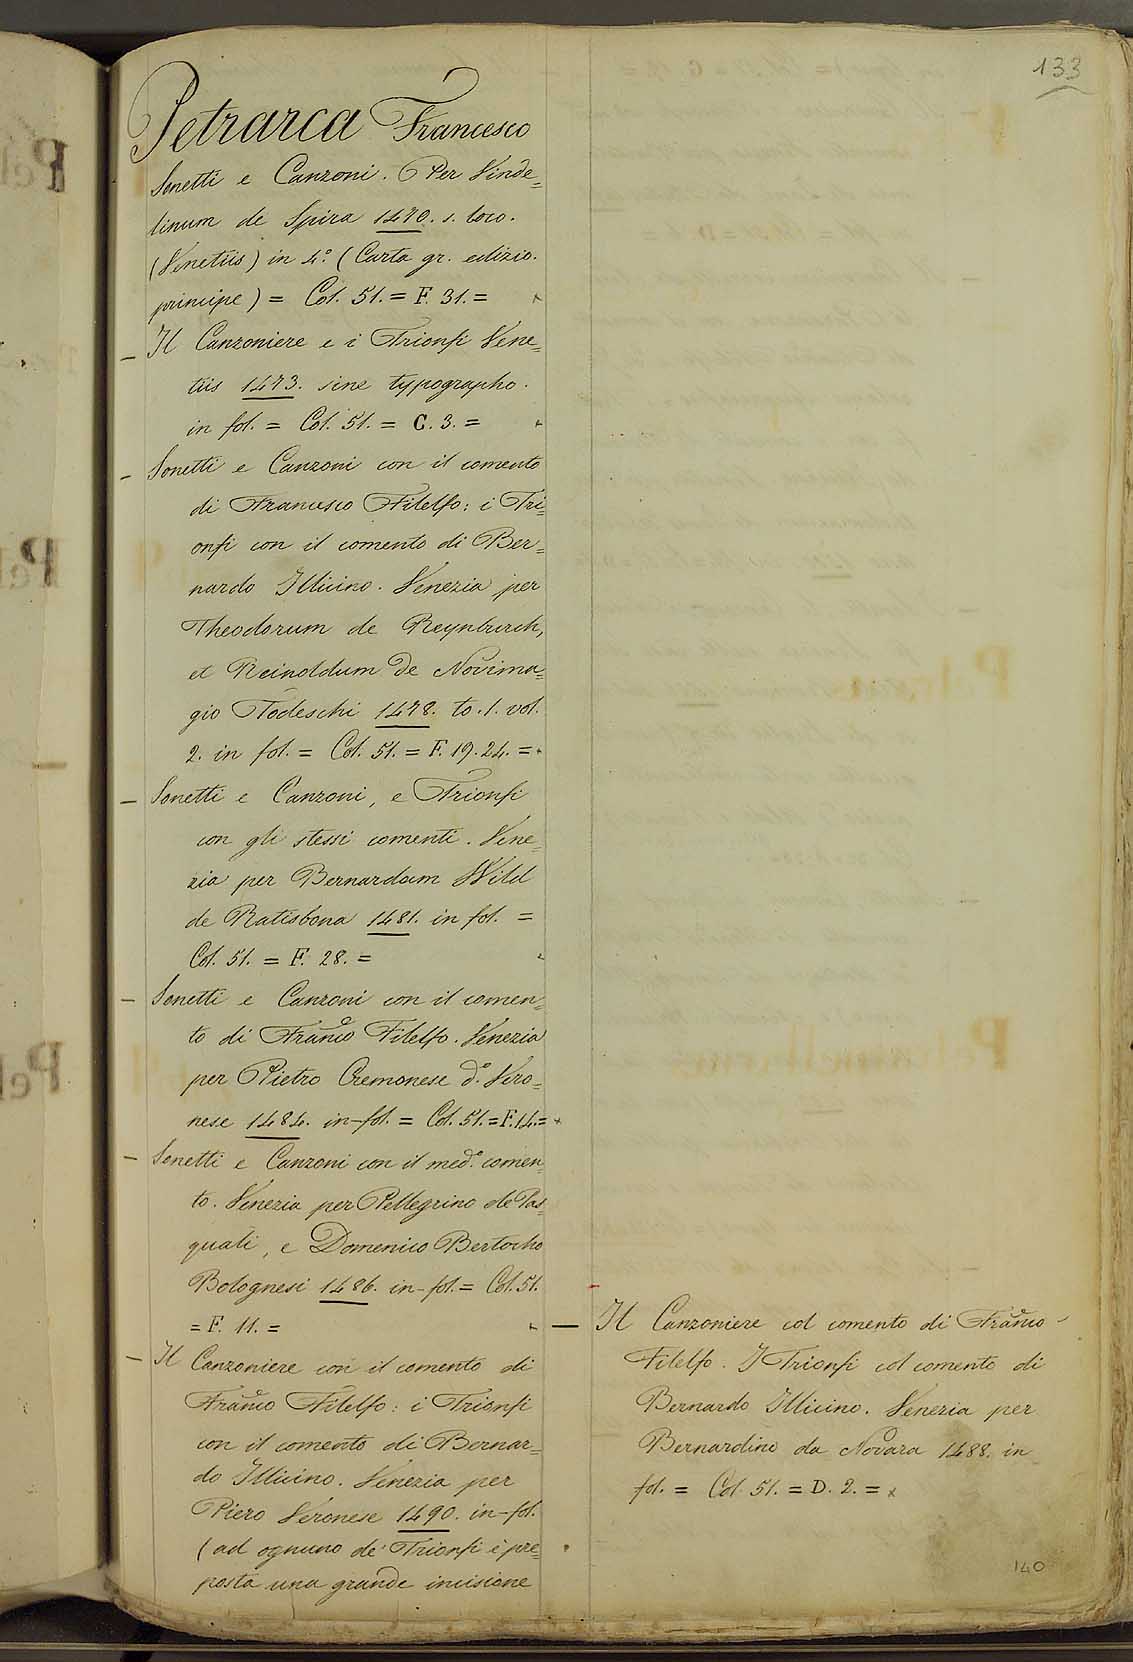 133
Petrarca Francesco
Sonetti e Canzoni. Per Vinde=
linum de Spira 1470. s. loco.
(Venetiis) in 4.º (Carta gr. edizio.
principe) = Col. 51. = F. 31. =
— Il Canzoniere e i Trionfi Vene=
tiis 1473. sine typographo.
in fol. = Col. 51. = G. 3. =
— Sonetti e Canzoni con il comento
di Francesco Filelfo: i Tri=
onfi con il comento di Ber=
nardo Illicino. Venezia per
Theodorum de Reynburch,
et Reinoldum de Novima=
gio Todeschi 1478. to. 1. vol.
2. in fol. = Col. 51. = F. 19. 24. =
— Sonetti e Canzoni, e Trionfi
con gli stessi comenti. Vene=
zia per Bernardum Wild
de Ratisbona 1481. in fol. =
Col. 51. = F. 28. =
— Sonetti e Canzoni con il comen=
to di Franco Filelfo. Venezia
per Pietro Cremonese d.º Vero=
nese 1484. in-fol. = Col. 51. = F. 14. =
— Sonetti e Canzoni con il med.º comen=
to. Venezia per Pellegrino de Pas=
quali, e Domenico Bertocho
Bolognesi 1486. in-fol. = Col. 51.
= F. 11. =
— Il Canzoniere con il comento di
Franco Filelfo: i Trionfi
con il comento di Bernar=
do Illicino. Venezia per
Piero Veronese 1490. in-fol.
(ad ognuno de' Trionfi è pre=
posta una grande incisione
— Il Canzoniere col comento di Franco
Filelfo. I Trionfi col comento di
Bernardo Illicino. Venezia per
Bernardino da Novara 1488. in
fol. = Col. 51. = D. 2. =
140